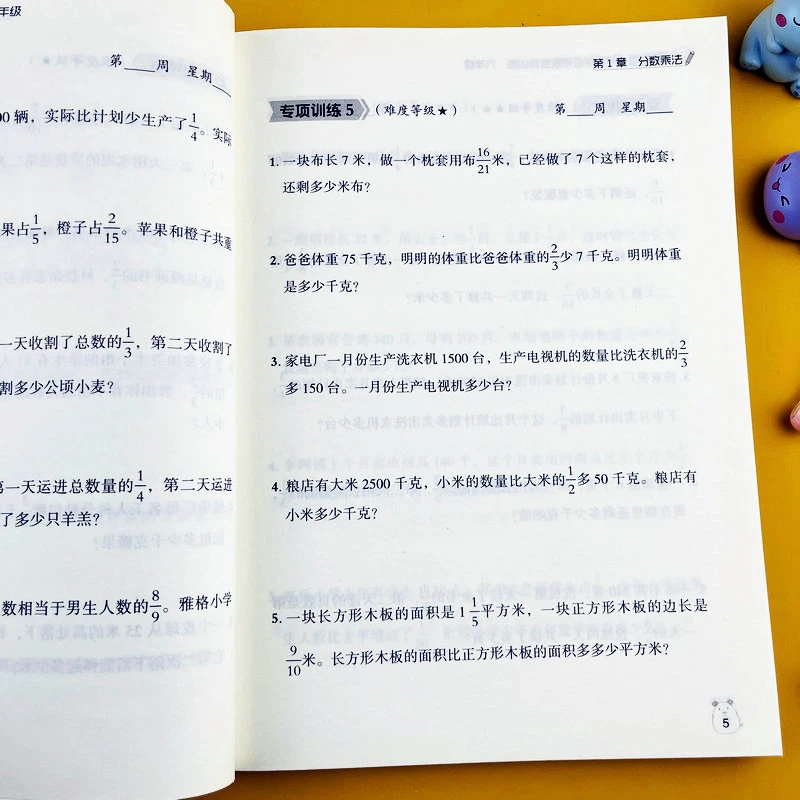 年级
第____周 星期____
00 辆，实际比计划少生产了1/4。实际
果占1/5，橙子占2/15。苹果和橙子共重
一天收割了总数的1/3，第二天收割了
割多少公顷小麦？
第一天运进总数量的1/4，第二天运进
了多少只羊羔？
数相当于男生人数的8/9。雅格小学
第 1 章 分数乘法
专项训练 5 （难度等级★） 第____周 星期____
1. 一块布长 7 米，做一个枕套用布16/21米，已经做了 7 个这样的枕套，
还剩多少米布？
2. 爸爸体重 75 千克，明明的体重比爸爸体重的2/3少 7 千克。明明体重
是多少千克？
3. 家电厂一月份生产洗衣机 1500 台，生产电视机的数量比洗衣机的2/3
多 150 台。一月份生产电视机多少台？
4. 粮店有大米 2500 千克，小米的数量比大米的1/2多 50 千克。粮店有
小米多少千克？
5. 一块长方形木板的面积是 1 1/5平方米，一块正方形木板的边长是
9/10米。长方形木板的面积比正方形木板的面积多多少平方米？
5